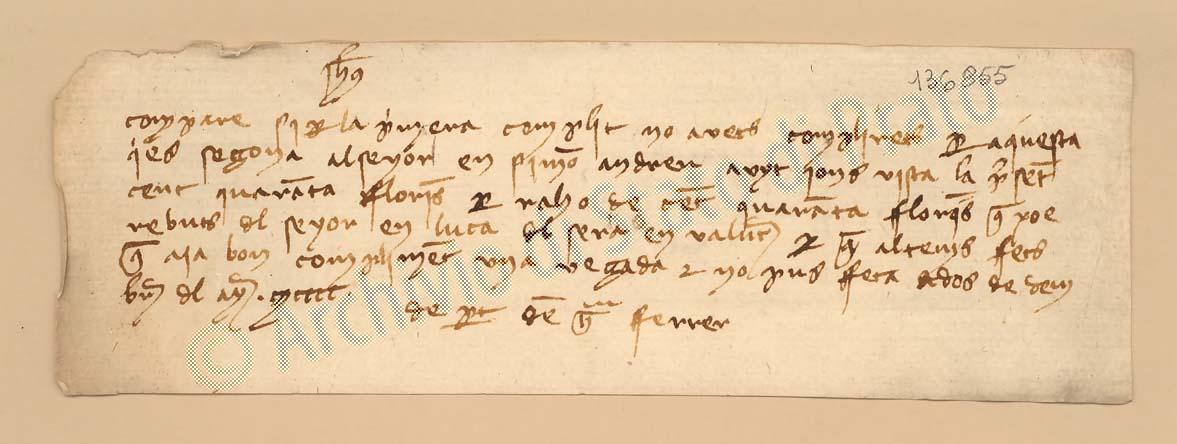 Jhs
136855
compare si per la primera complit no avets complirets per aquesta
qes segona al seyor en simo andreu a vyt jorns vista la present
cent quaranta fflorins per raho de cent quaranta fflorins q
rebuts del seyor en luca del sera en valencia
q aja bon compliment una vegada e no pus ffeta a dos de dem
bre del any mcccc
de part den ferrer
© Archivio di Stato di Prato